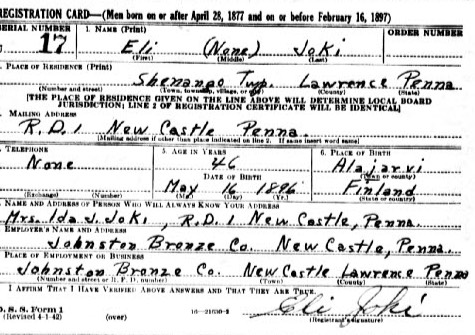 REGISTRATION CARD—(Men born on or after April 28, 1877 and on or before February 16, 1897)
SERIAL NUMBER 1. NAME (Print) ORDER NUMBER
17 Eli (None) Joki
(First) (Middle) (Last)
PLACE OF RESIDENCE (Print)
Shenango Twp. Lawrence Penna.
(Number and street) (Town, township, village, or city) (County) (State)
[THE PLACE OF RESIDENCE GIVEN ON THE LINE ABOVE WILL DETERMINE LOCAL BOARD
JURISDICTION; LINE 2 OF REGISTRATION CERTIFICATE WILL BE IDENTICAL]
MAILING ADDRESS
R.D.1 New Castle Penna.
[Mailing address if other than place indicated on line 2. If same insert word same]
TELEPHONE 5. AGE IN YEARS 6. PLACE OF BIRTH
None 46 Alajarvi
DATE OF BIRTH (Town or county)
May 16 1896 Finland
(Exchange) (Number) (Mo.) (Day) (Yr.) (State or country)
NAME AND ADDRESS OF PERSON WHO WILL ALWAYS KNOW YOUR ADDRESS
Mrs. Ida J. Joki, R.D.1 New Castle, Penna.
EMPLOYER'S NAME AND ADDRESS
Johnston Bronze Co. New Castle, Penna.
PLACE OF EMPLOYMENT OR BUSINESS
Johnston Bronze Co. New Castle Lawrence Penna
(Number and street or R. F. D. number) (Town) (County) (State)
I AFFIRM THAT I HAVE VERIFIED ABOVE ANSWERS AND THAT THEY ARE TRUE.
Eli Joki
D. S. S. Form 1
(Revised 4-1-42) (over) 16—21630-2 (Registrant's signature)